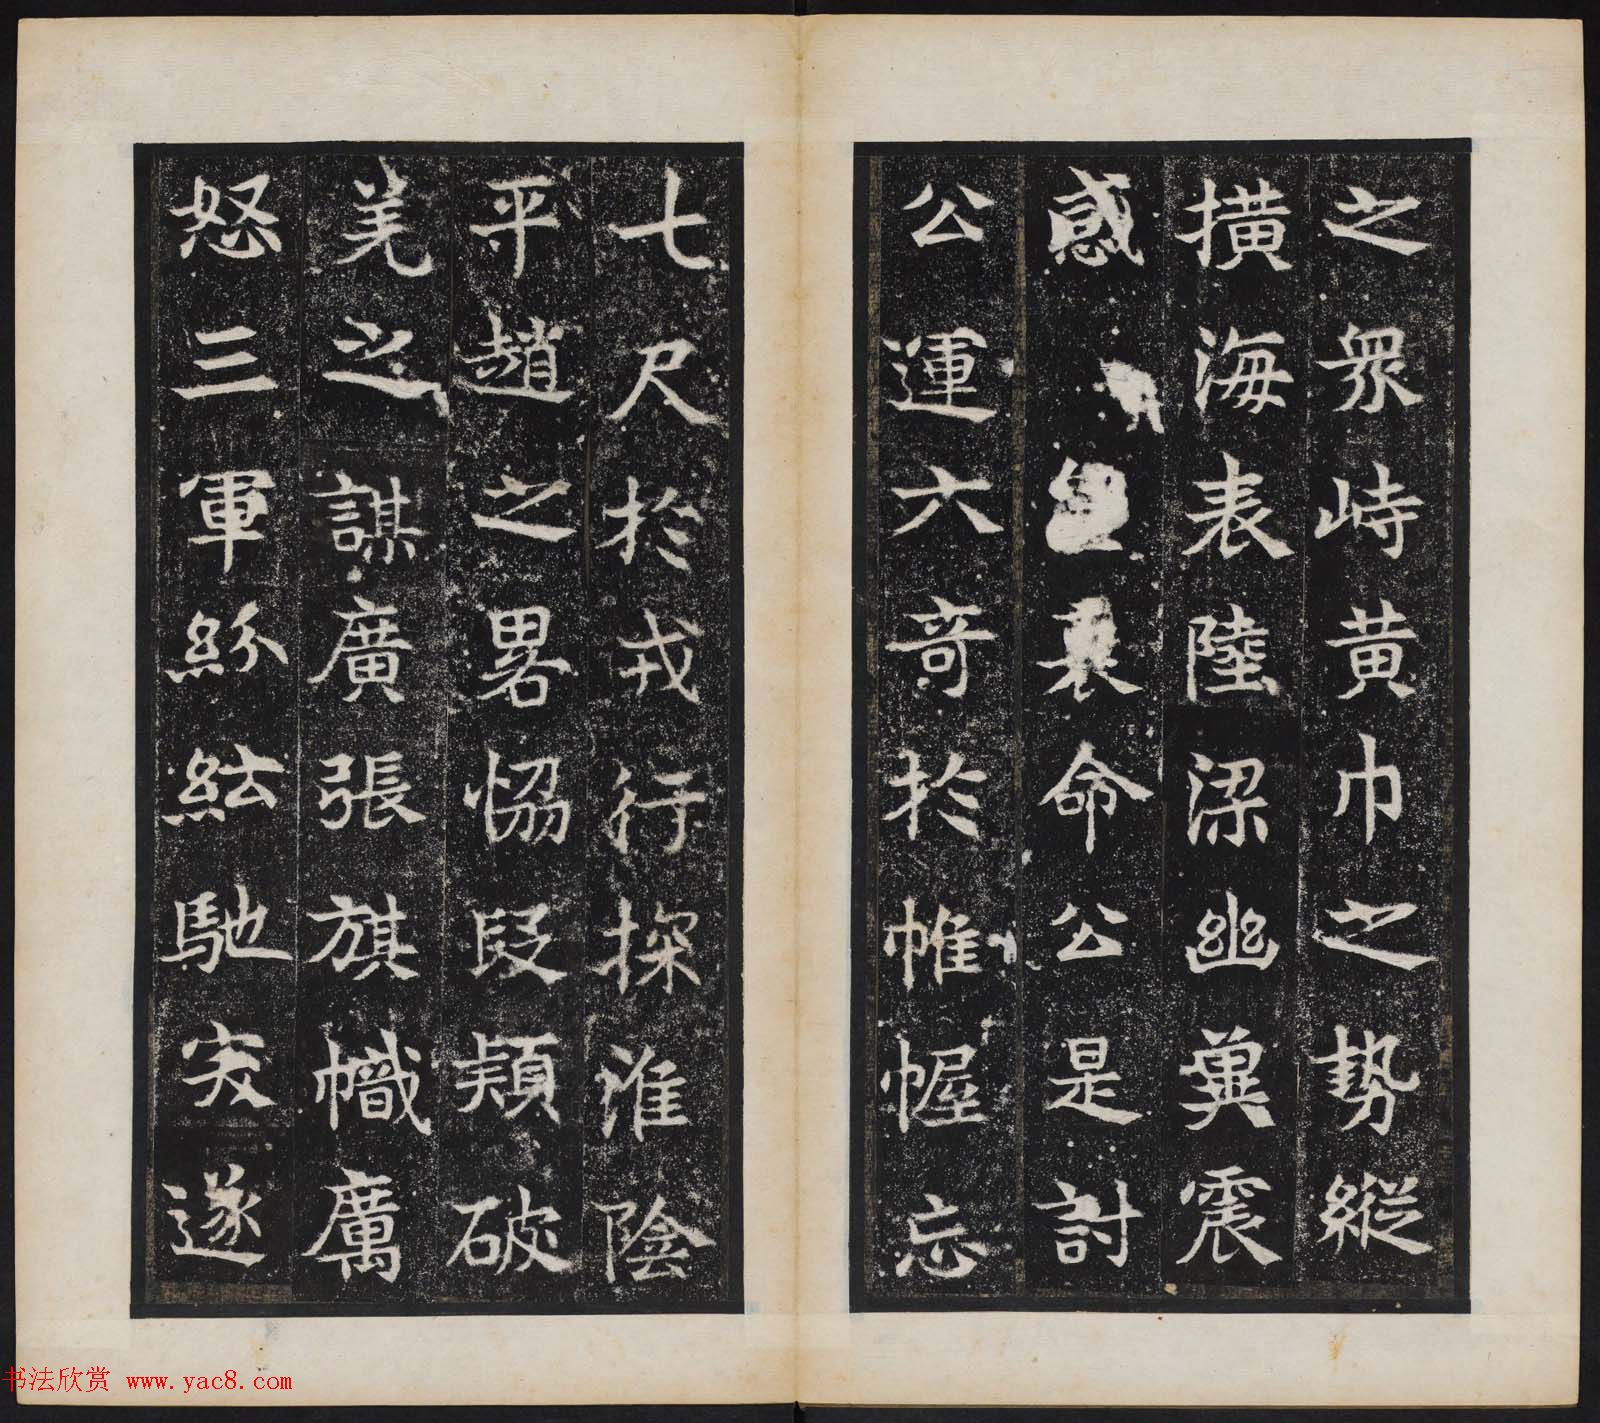 之衆峙黄巾之勢縱
撗海表陸梁幽冀震
感命公是討
公運六竒於帷幄忘
七尺於戎行探淮陰
平趙之畧恊段熲破
羌之謀廣張旗幟厲
怒三軍紛紜馳突遂
书法欣赏 www.yac8.com